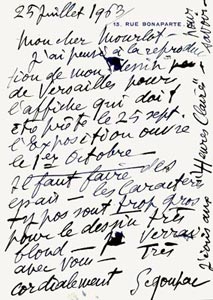 25 juillet 1963
13, RUE BONAPARTE
Mon cher Mourlot -
J'ai pensé à la reproduc
tion de mon dessin
de Versailles pour
l'affiche qui doit
être prête le 25 sept.
l'Exposition ouvre
le 1er Octobre -
Il faut faire des
épais - les caractères
typos sont trop gros
pour le dessin très
blond -
avec vous! Très
cordialement
Segonzac
"Heures Claires"